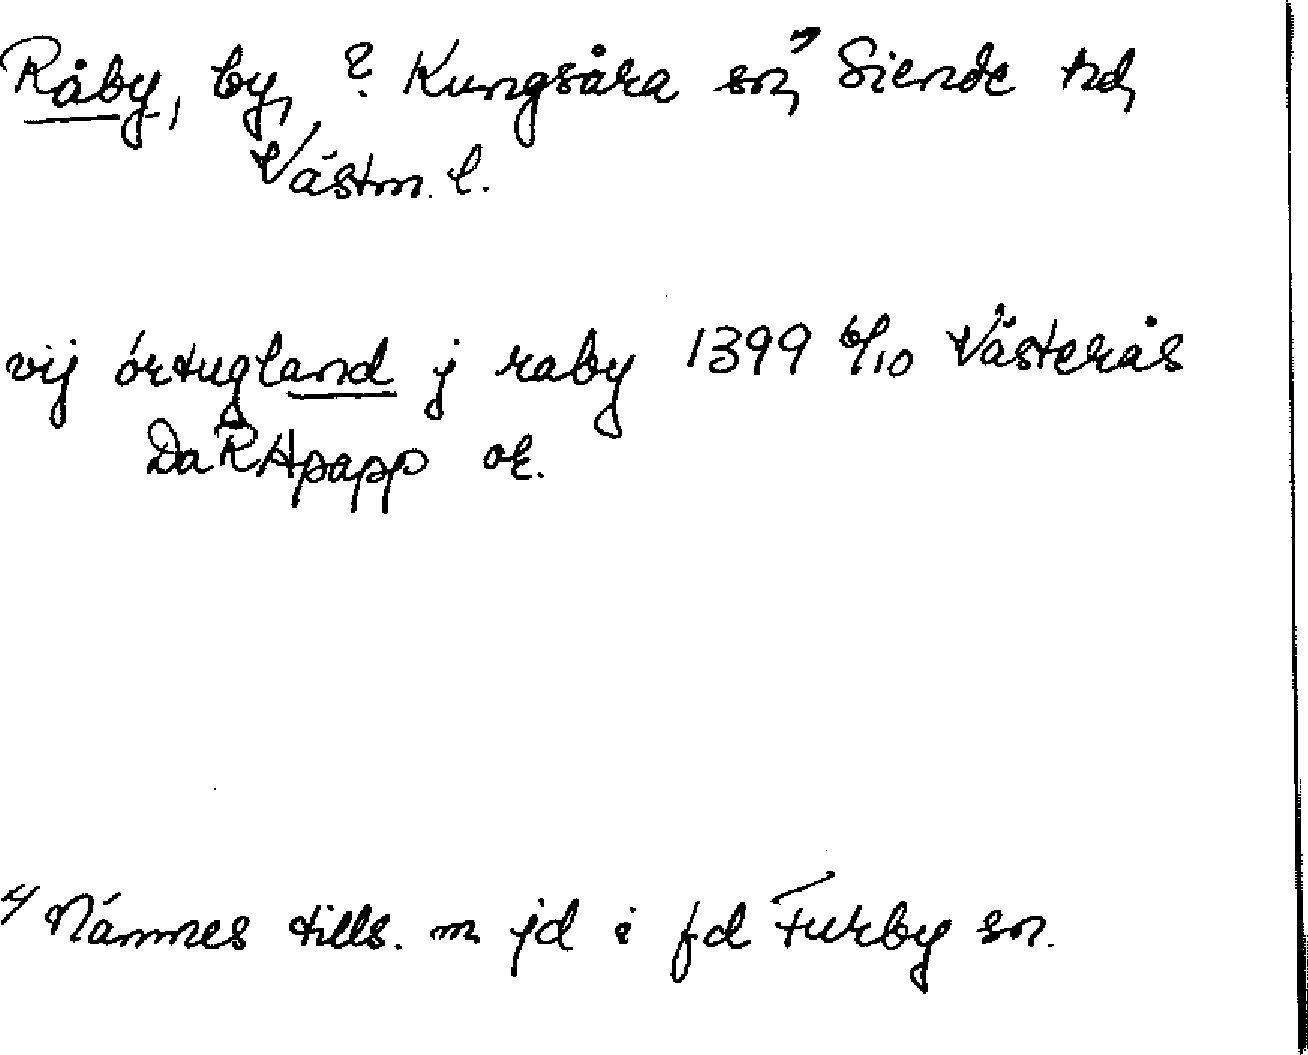 Råby, by, ? Kungsåra sn,¹⁾ Siende hd,
Västm. l.
vij örtugland j raby 1399 6/10 Västerås
DaRApapp or.
¹⁾ Nämnes tills. m jd i fd Furby sn.